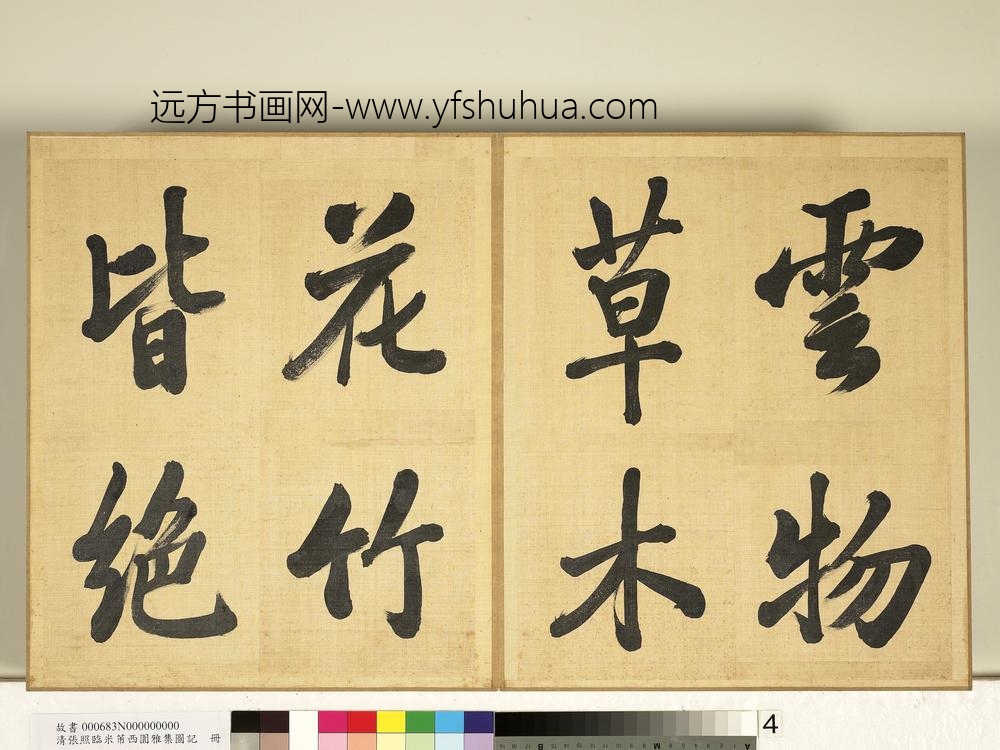 远方书画网-www.yfshuhua.com
雲物
草木
花竹
皆絶
故書 000683N000000000
清張照臨米芾西園雅集圖記 冊
4